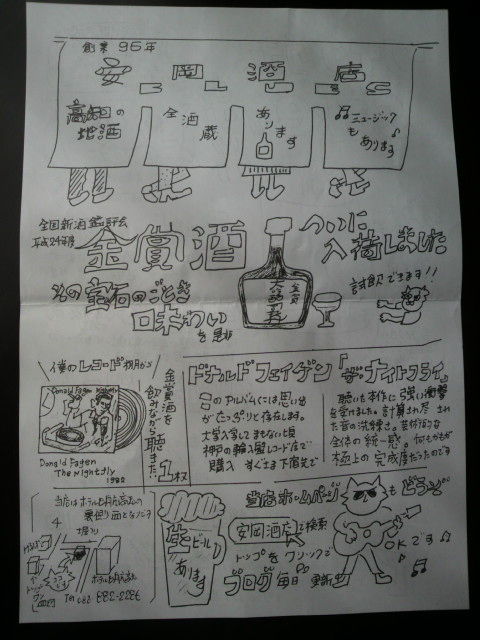 創業95年
安岡酒店
高知の
地酒
全酒
蔵
あり
ます
ミュージック
も
あります
全国新酒鑑評会
平成24年度
金賞酒
ついに
入荷しました
試飲できます!!
その宝石のごとき
味わい
を是非
僕のレコード棚から
金賞酒を
飲みながら聴きたい
1枚
Donald Fagen
The Nightfly
1982
ドナルドフェイゲン「ザ・ナイトフライ」
このアルバムには思い出
がたっぷりと存在します。
大学入学してまもない頃
神戸の輸入盤レコード店で
購入 すぐさま下宿先で
聴いた本作に強い衝撃
を受けました。計算された
た音の洗練さ。芸術的な
全体の統一感。何もかもが
極上の完成度だったのです
当店は
裏側
生ビール
あります
当店ホームページもどうぞ
で検索
トップをクリックで
OKです
ブログ毎日更新